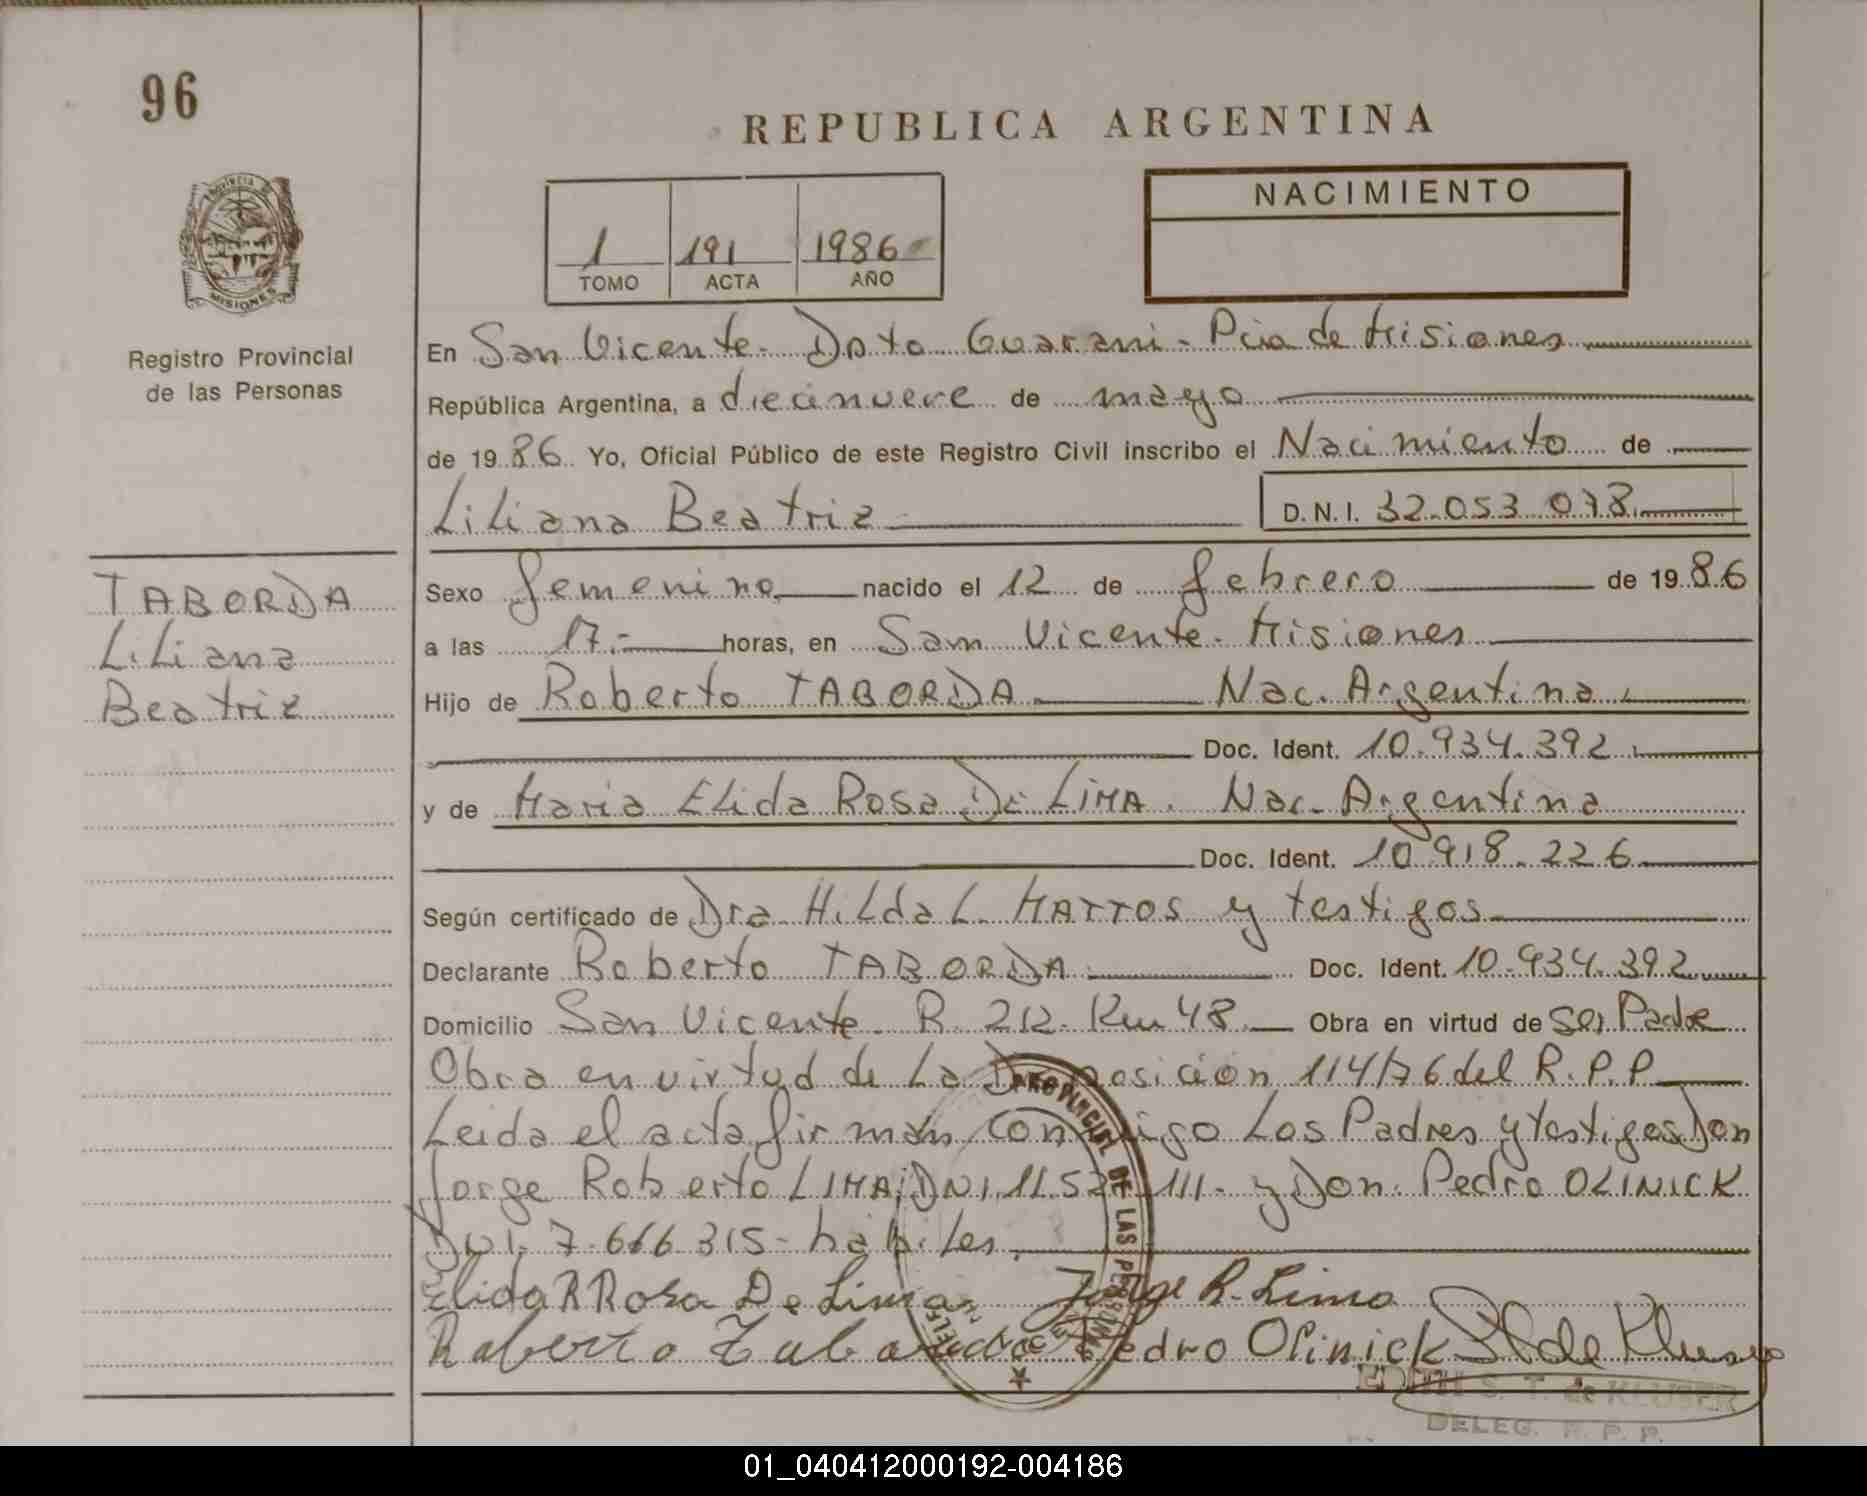 96
REPUBLICA ARGENTINA
NACIMIENTO
1 191 1986
TOMO ACTA AÑO
PROVINCIA DE
MISIONES
Registro Provincial
de las Personas
En San Vicente - Dpto Guarani - Pcia de Misiones
República Argentina, a diecinueve de mayo
de 1986 Yo, Oficial Público de este Registro Civil inscribo el Nacimiento de
Liliana Beatriz D.N.I. 32.053.078
TABORDA
Liliana
Beatriz
Sexo femenino nacido el 12 de febrero de 1986
a las 17.- horas, en San Vicente - Misiones
Hijo de Roberto TABORDA Nac. Argentina
Doc. Ident. 10.934.392
y de Maria Elida Rosa De LIMA. Nac. Argentina
Doc. Ident. 10.918.226
Según certificado de Dra. Hilda L. MATTOS y testigos
Declarante Roberto TABORDA Doc. Ident. 10.934.392
Domicilio San Vicente R. 212 - Km 48 Obra en virtud de ser Padre
Obra en virtud de La Disposición 114/76 del R.P.P
Leida el acta firman conmigo Los Padres y testigos Don
Jorge Roberto LIMA; DNI 11.52 111- y Don Pedro OLINICK
DNI. 7.666.315- habiles
Elida R Rosa De Lima Jorge R. Lima
Roberto Taborda Pedro Olinick S T de Kluser
PROVINCIAL DE LAS PERSONAS
EDITH S. T. de KLUSER
DELEG. R. P. P.
01_040412000192-004186